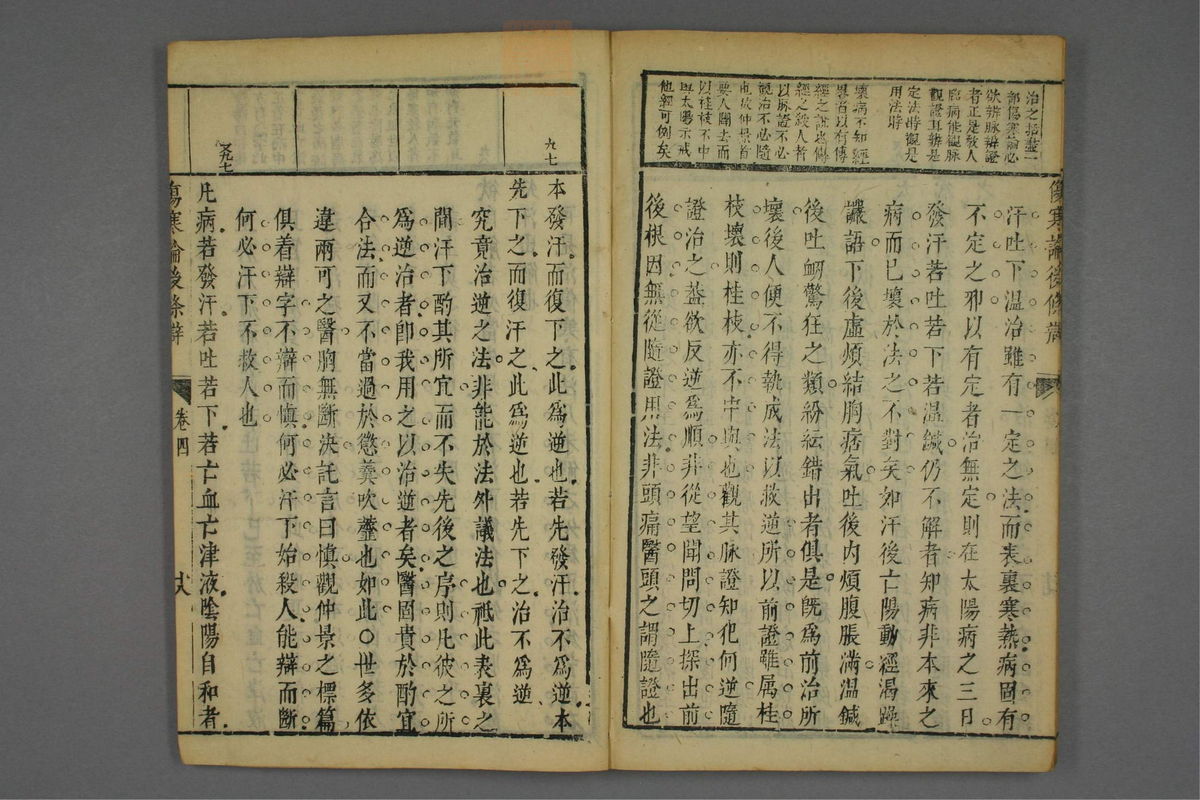 治之招盡一
部傷寒論必
欲辨脉辨證
者正是敎人
臨病能觀脉
觀證耳辨是
定法時觀是
用法時
壞病不知經
畧者以有傳
經之說也傳
經之殺人者
以脉證不必
觀治不必隨
也故仲景首
要人闢去而
以桂枝不中
與太陽示戒
他經可例矣
傷寒論後條辯
汗吐下温治雖有一定之法而表裏寒熱病固有
不定之邪以有定者治無定則在太陽病之三日
發汗若吐若下若温鍼仍不解者知病非本來之
病而已壞於法之不對矣如汗後亡陽動經渴躁
讝語下後虛煩結胸痞氣吐後内煩腹脹滿温鍼
後吐衂驚狂之類紛紜錯出者俱是旣爲前治所
壞後人便不得執成法以救逆所以前證雖属桂
枝壞則桂枝亦不中與也觀其脉證知犯何逆隨
證治之葢欲反逆爲順非從望聞問切上探出前
後根因無從隨證用法非頭痛醫頭之謂隨證也
九七
本發汗而復下之此爲逆也若先發汗治不爲逆本
先下之而復汗之此爲逆也若先下之治不爲逆
究竟治逆之法非能於法外議法也祗此表裏之
間汗下酌其所宜而不失先後之序則凡彼之所
爲逆治者卽我用之以治逆者矣醫固貴於酌宜
合法而又不當過於懲羹吹虀也如此○世多依
違兩可之醫胸無斷决託言曰愼觀仲景之標篇
俱着辯字不辯而愼何必汗下始殺人能辯而斷
何必汗下不救人也
又九七
凡病若發汗若吐若下若亡血亡津液陰陽自和者
傷寒論後条辯
卷四
廿八